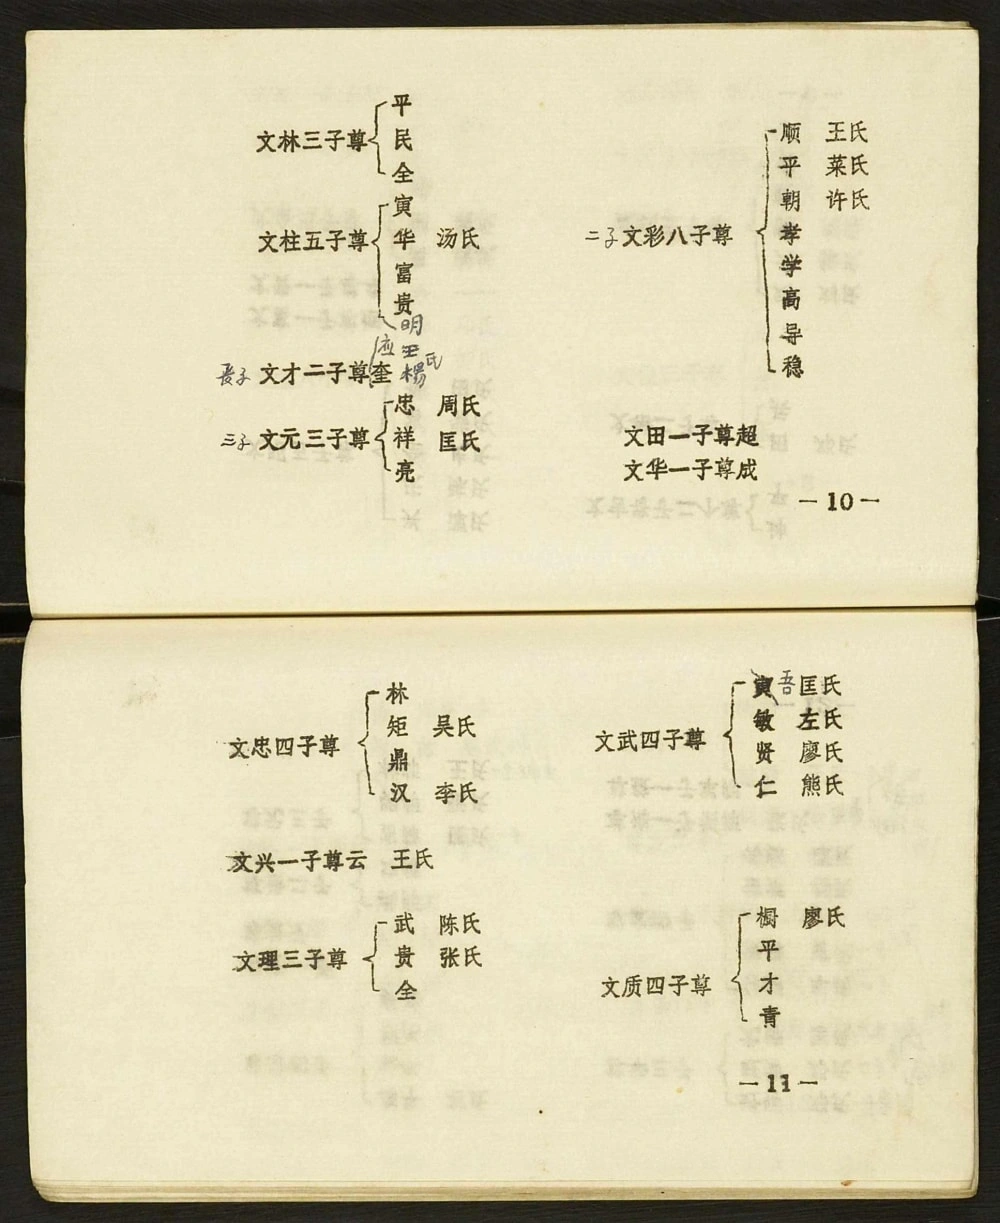 文林三子尊
平
民
全
文柱五子尊
寅
华 汤氏
富
贵
明
长子 文才二子尊奎
应
王
杨氏
三子 文元三子尊
忠 周氏
祥 匡氏
亮
二子 文彩八子尊
顺 王氏
平 莱氏
朝 许氏
孝
学
高
导
稳
文田一子尊超
文华一子尊成
—10—
文忠四子尊
林
矩 吴氏
鼎
汉 李氏
文兴一子尊云 王氏
文理三子尊
武 陈氏
贵 张氏
全
文武四子尊
寅 吾 匡氏
敏 左氏
贤 廖氏
仁 熊氏
文质四子尊
榈 廖氏
平
才
青
—11—